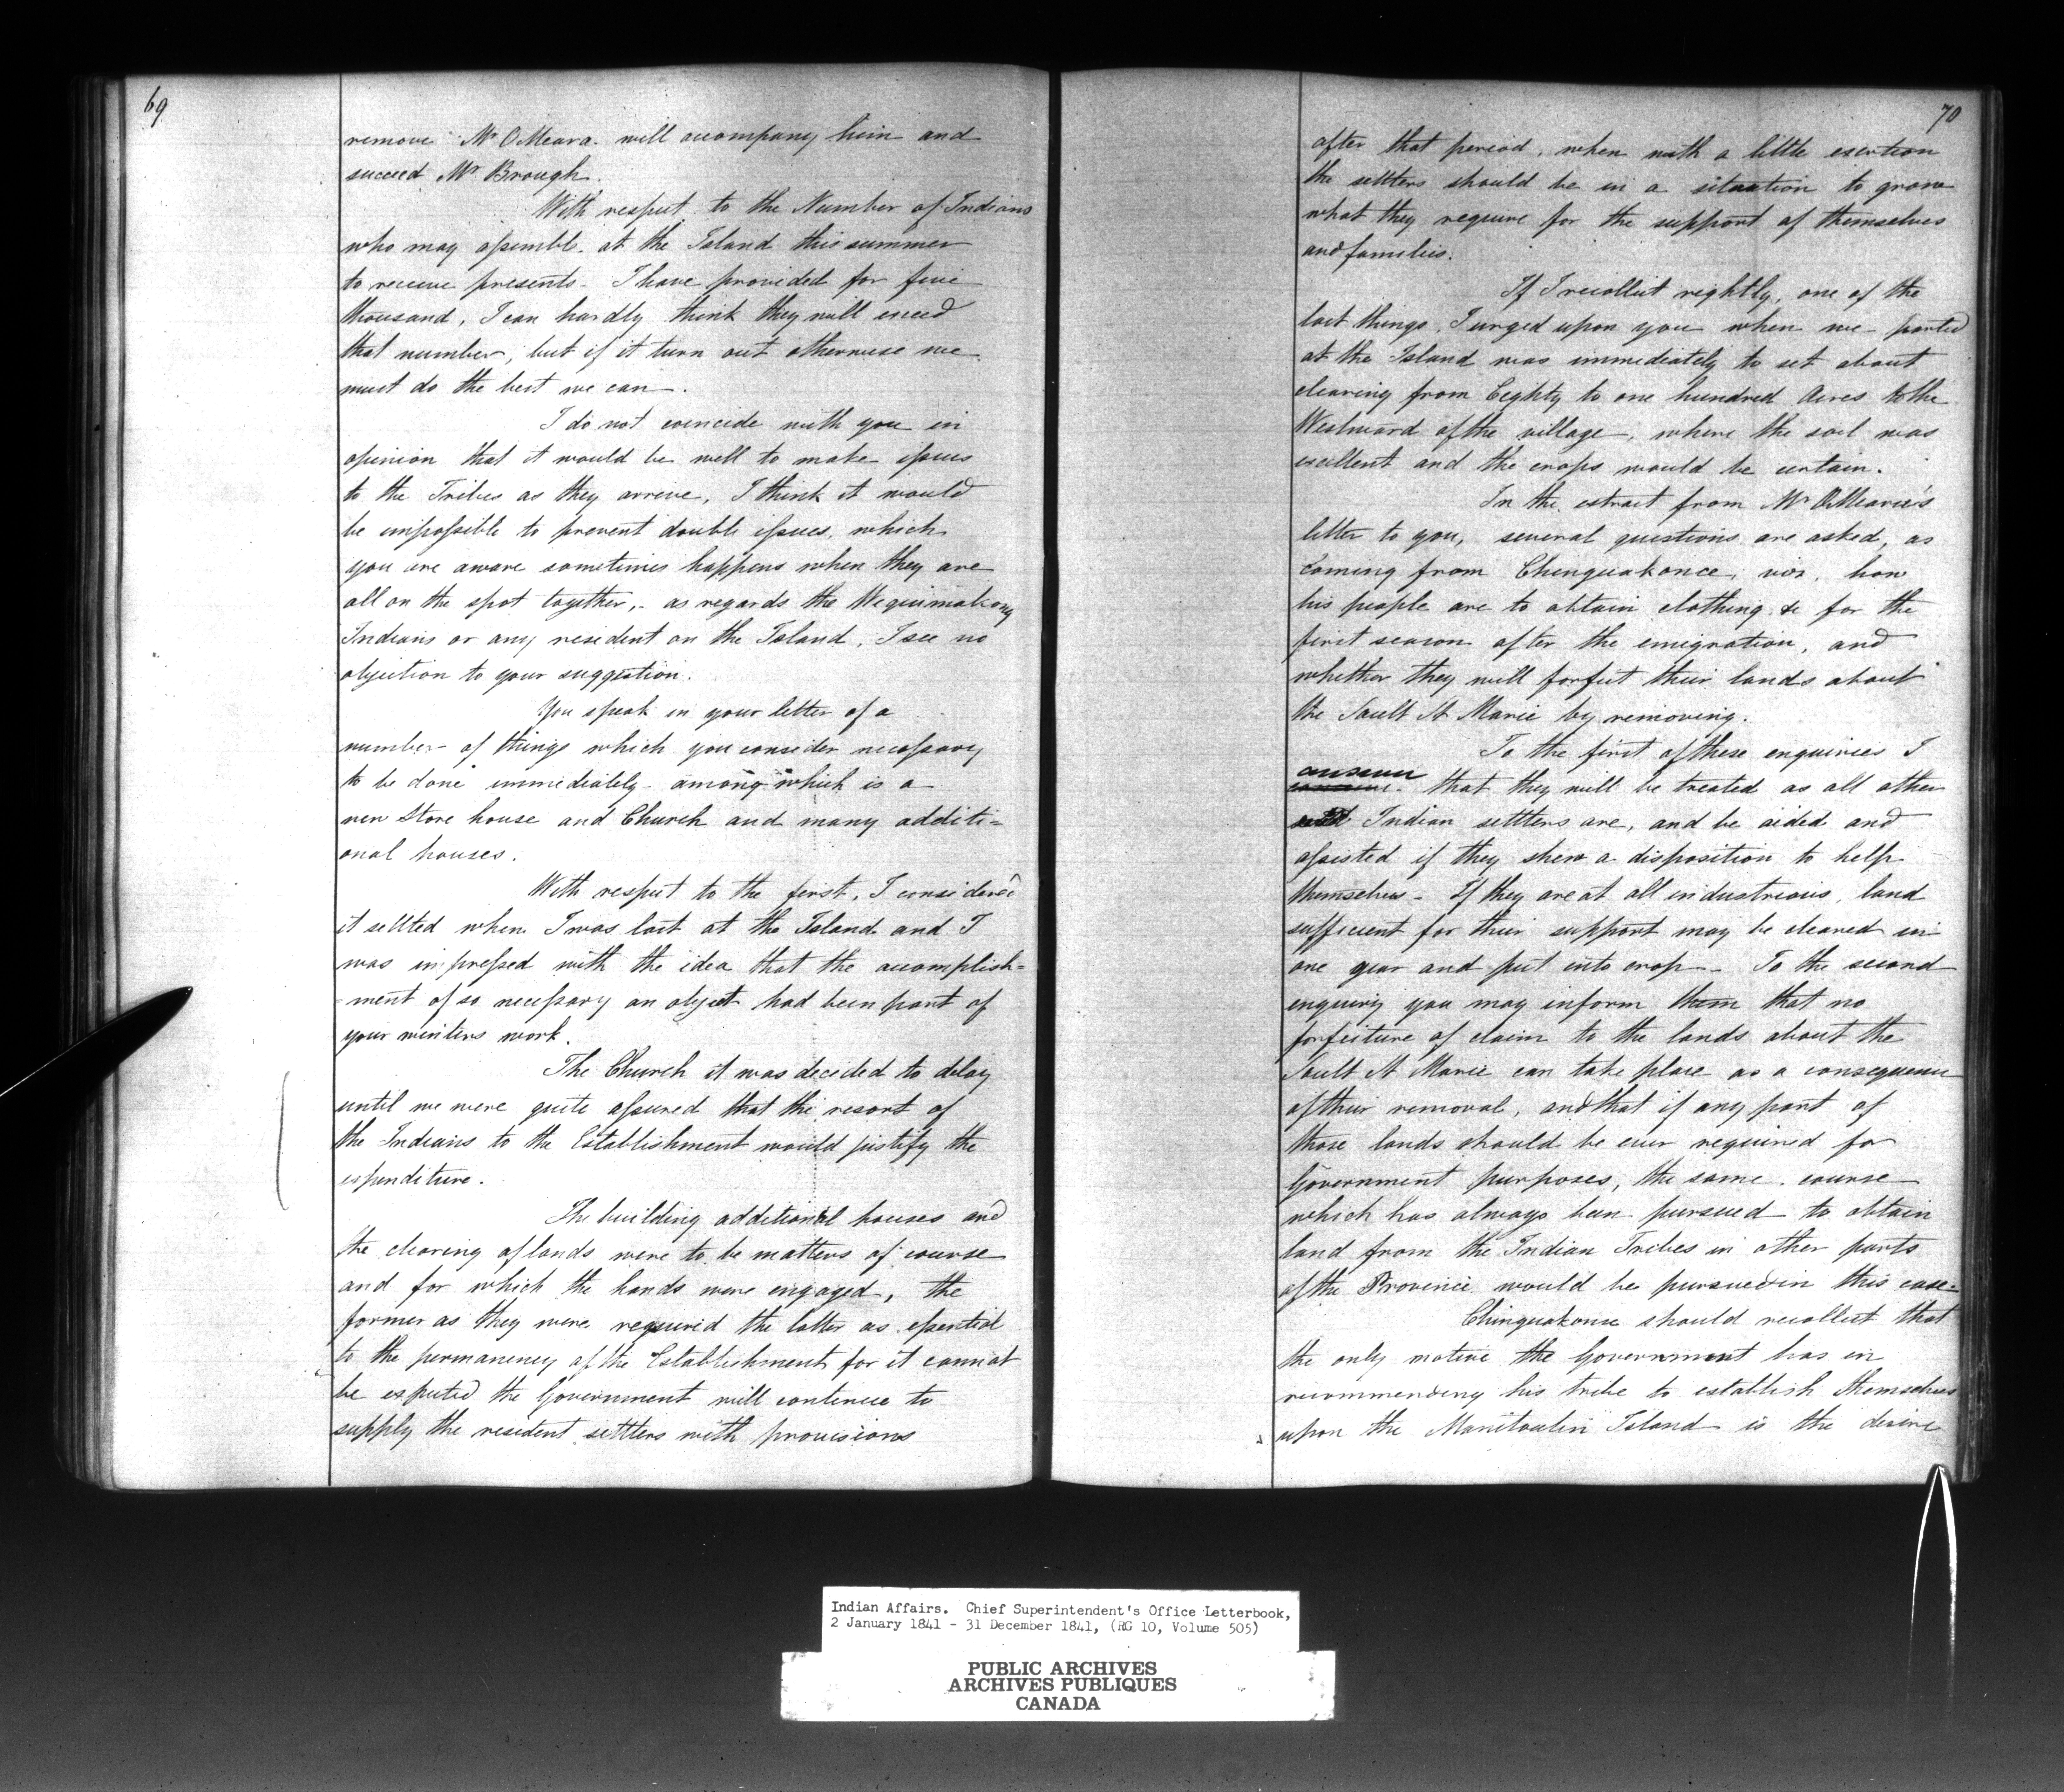 69
remove Mr O Meara will accompany him and
succeed Mr Brough.
With respect to the Number of Indians
who may assemble at the Island this summer
to receive presents - I have provided for five
thousand, I can hardly think they will exceed
that number, but if it turn out otherwise we
must do the best we can.
I do not coincide with you in
opinion that it would be well to make issues
to the Tribes as they arrive, I think it would
be impossible to prevent double issues, which
you are aware sometimes happens when they are
all on the spot together, - as regards the Wequimakong
Indians or any resident on the Island, I see no
objection to your suggestion.
You speak in your letter of a
number of things which you consider necessary
to be done immediately - among which is a
new Store house and Church and many additi=
onal houses.
With respect to the first, I considered
it settled when I was last at the Island and I
was impressed with the idea that the accomplish=
=ment of so necessary an object had been part of
your winters work.
The Church it was decided to delay
until we were quite assured that the resort of
the Indians to the Establishment would justify the
expenditure.
The building additional houses and
the clearing of lands were to be matters of course
and for which the hands were engaged, the
former as they were required the latter as essential
to the permanency of the Establishment for it cannot
be expected the Government will continue to
supply the resident settlers with provisions
70
after that period, when with a little exertion
the settlers should be in a situation to grow
what they require for the support of themselves
and families.
If I recollect rightly, one of the
last things I urged upon you when we parted
at the Island was immediately to set about
clearing from Eighty to one hundred Acres to the
Westward of the village, where the soil was
excellent and the crops would be certain.
In the extract from Mr O Meara's
letter to you, several questions are asked, as
coming from Chinguakonce, viz, how
his people are to obtain clothing &c for the
first season after the emigration, and
whether they will forfeit their lands about
the Sault St Marie by removing.
To the first of these enquiries I
answer
that they will be treated as all other
Indian settlers are, and be aided and
assisted if they shew a disposition to help
themselves - If they are at all industrious, land
sufficient for their support may be cleared in
one year and put into crop - To the second
enquiry you may inform them that no
forfeiture of claim to the lands about the
Sault St Marie can take place as a consequence
of their removal, and that if any part of
those lands should be ever required for
Government purposes, the same course
which has always been pursued to obtain
land from the Indian Tribes in other parts
of the Province would be pursued in this case -
Chinguakonse should recollect that
the only motive the Government has in
recommending his tribe to establish themselves
upon the Manitoulin Island is the desire
Indian Affairs. Chief Superintendent's Office Letterbook,
2 January 1841 - 31 December 1841, (RG 10, Volume 505)
PUBLIC ARCHIVES
ARCHIVES PUBLIQUES
CANADA